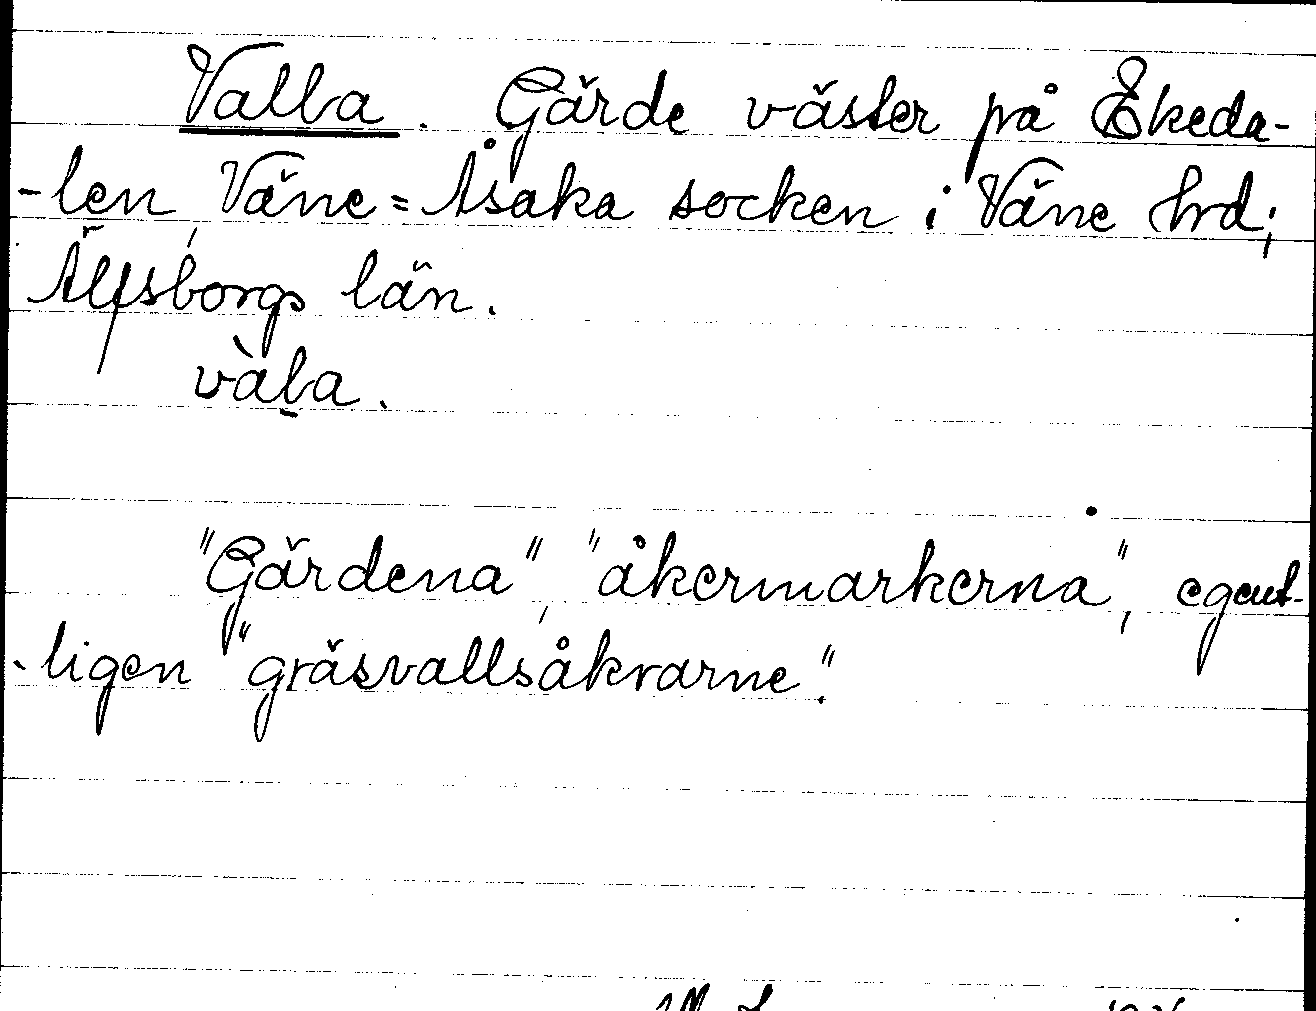 Valla. Gärde väster på Ekeda-
-len, Väne=Åsaka socken i Väne hrd;
Älfsborgs län.
vàḷa.
"Gärdena", "åkermarkerna", egent-
-ligen "gräsvallsåkrarne".